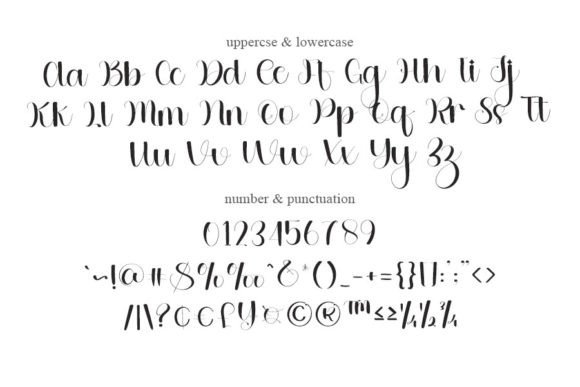 uppercse & lowercase
Aa Bb Cc Dd Ee Ff Gg Hh Ii Jj
Kk Ll Mm Nn Oo Pp Qq Rr Ss Tt
Uu Vv Ww Xx Yy Zz
number & punctuation
0123456789
`~!@#$%‰^&*()_-+={}[]:;"<>
/|\?¢€£¥¤©®™≤≥¼½¾